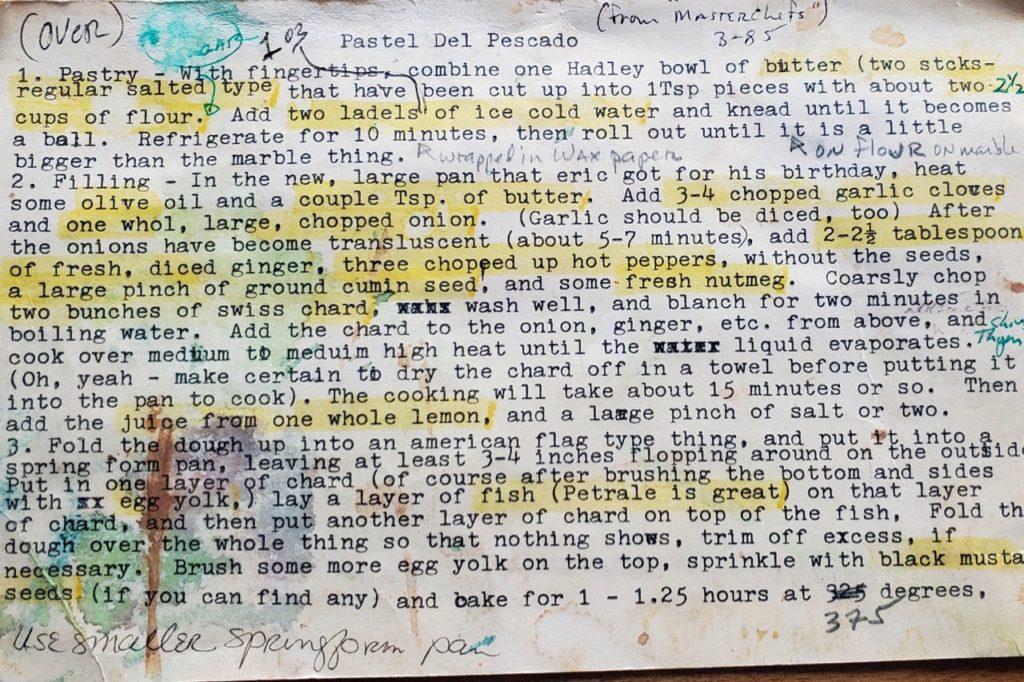 (OVER)
(from "MASTERCHEFS")
3-85
1 03
Pastel Del Pescado
1. Pastry - With fingertips, combine one Hadley bowl of butter (two stcks-
regular salted type that have been cut up into 1Tsp pieces with about two 2½
cups of flour. Add two ladels of ice cold water and knead until it becomes
a ball. Refrigerate for 10 minutes, then roll out until it is a little
bigger than the marble thing. wrapped in wax paper ON flOUR ON marble
2. Filling - In the new, large pan that eric got for his birthday, heat
some olive oil and a couple Tsp. of butter. Add 3-4 chopped garlic cloves
and one whol, large, chopped onion. (Garlic should be diced, too) After
the onions have become transluscent (about 5-7 minutes), add 2-2½ tablespoon
of fresh, diced ginger, three chopped up hot peppers, without the seeds,
a large pinch of ground cumin seed, and some fresh nutmeg. Coarsly chop
two bunches of swiss chard, wash well, and blanch for two minutes in
boiling water. Add the chard to the onion, ginger, etc. from above, and
cook over medium to meduim high heat until the water liquid evaporates.
(Oh, yeah - make certain to dry the chard off in a towel before putting it
into the pan to cook). The cooking will take about 15 minutes or so. Then
add the juice from one whole lemon, and a large pinch of salt or two.
3. Fold the dough up into an american flag type thing, and put it into a
spring form pan, leaving at least 3-4 inches flopping around on the outside
Put in one layer of chard (of course after brushing the bottom and sides
with egg yolk,) lay a layer of fish (Petrale is great) on that layer
of chard, and then put another layer of chard on top of the fish, Fold th
dough over the whole thing so that nothing shows, trim off excess, if
necessary. Brush some more egg yolk on the top, sprinkle with black musta
seeds (if you can find any) and bake for 1 - 1.25 hours at 325 degrees,
375
Use smaller springform pan